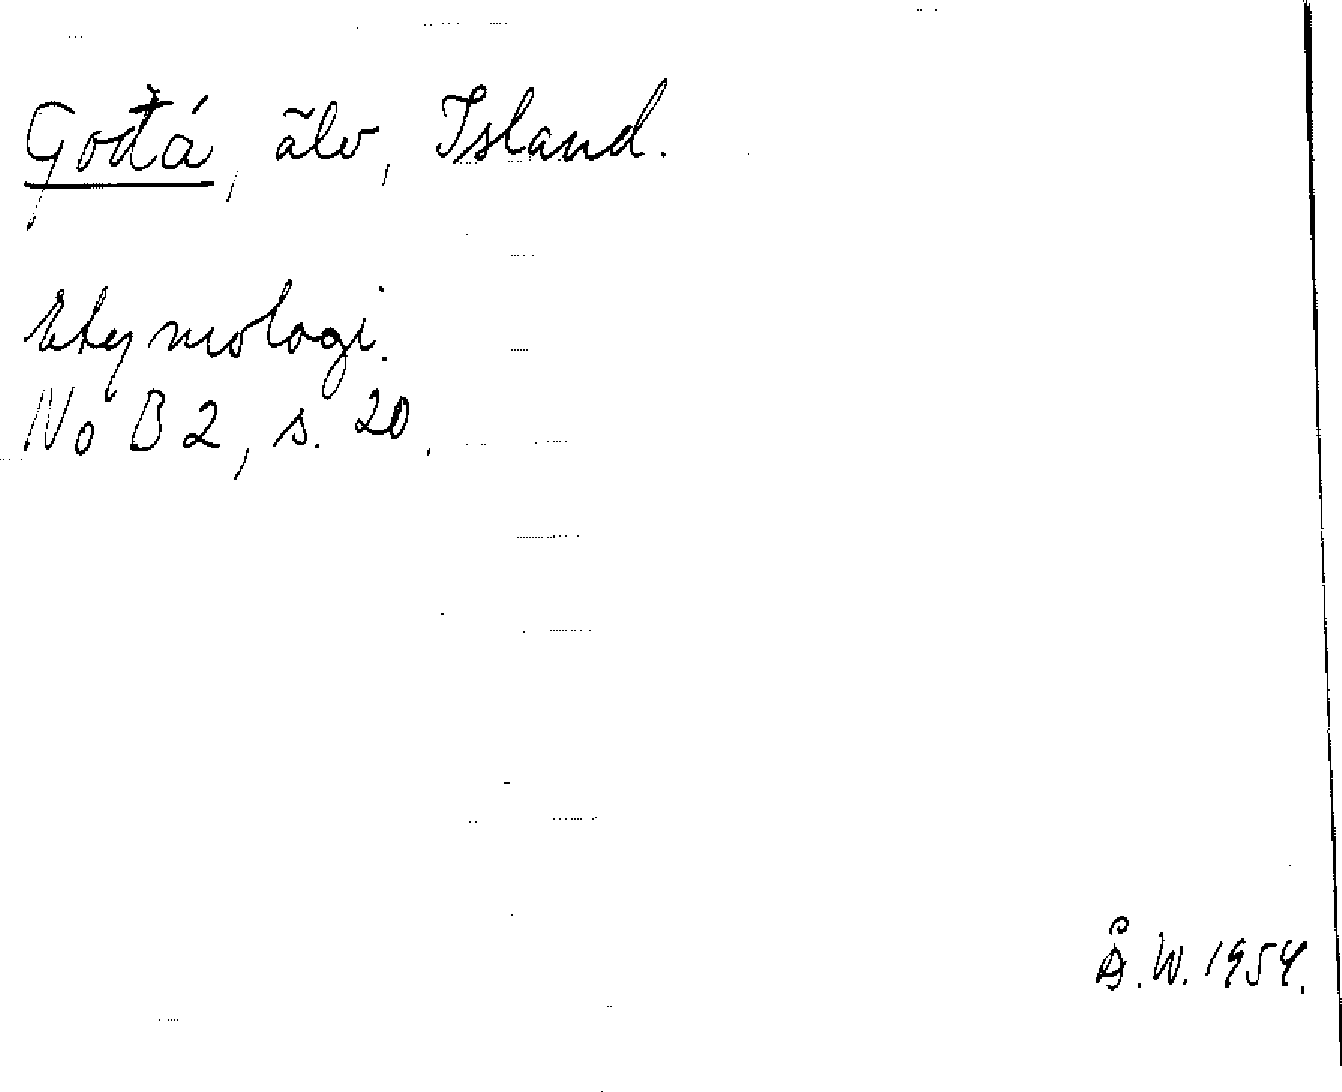 Gođá, älv, Island.
Etymologi.
No B 2, s. 20.
Å. W. 1954.